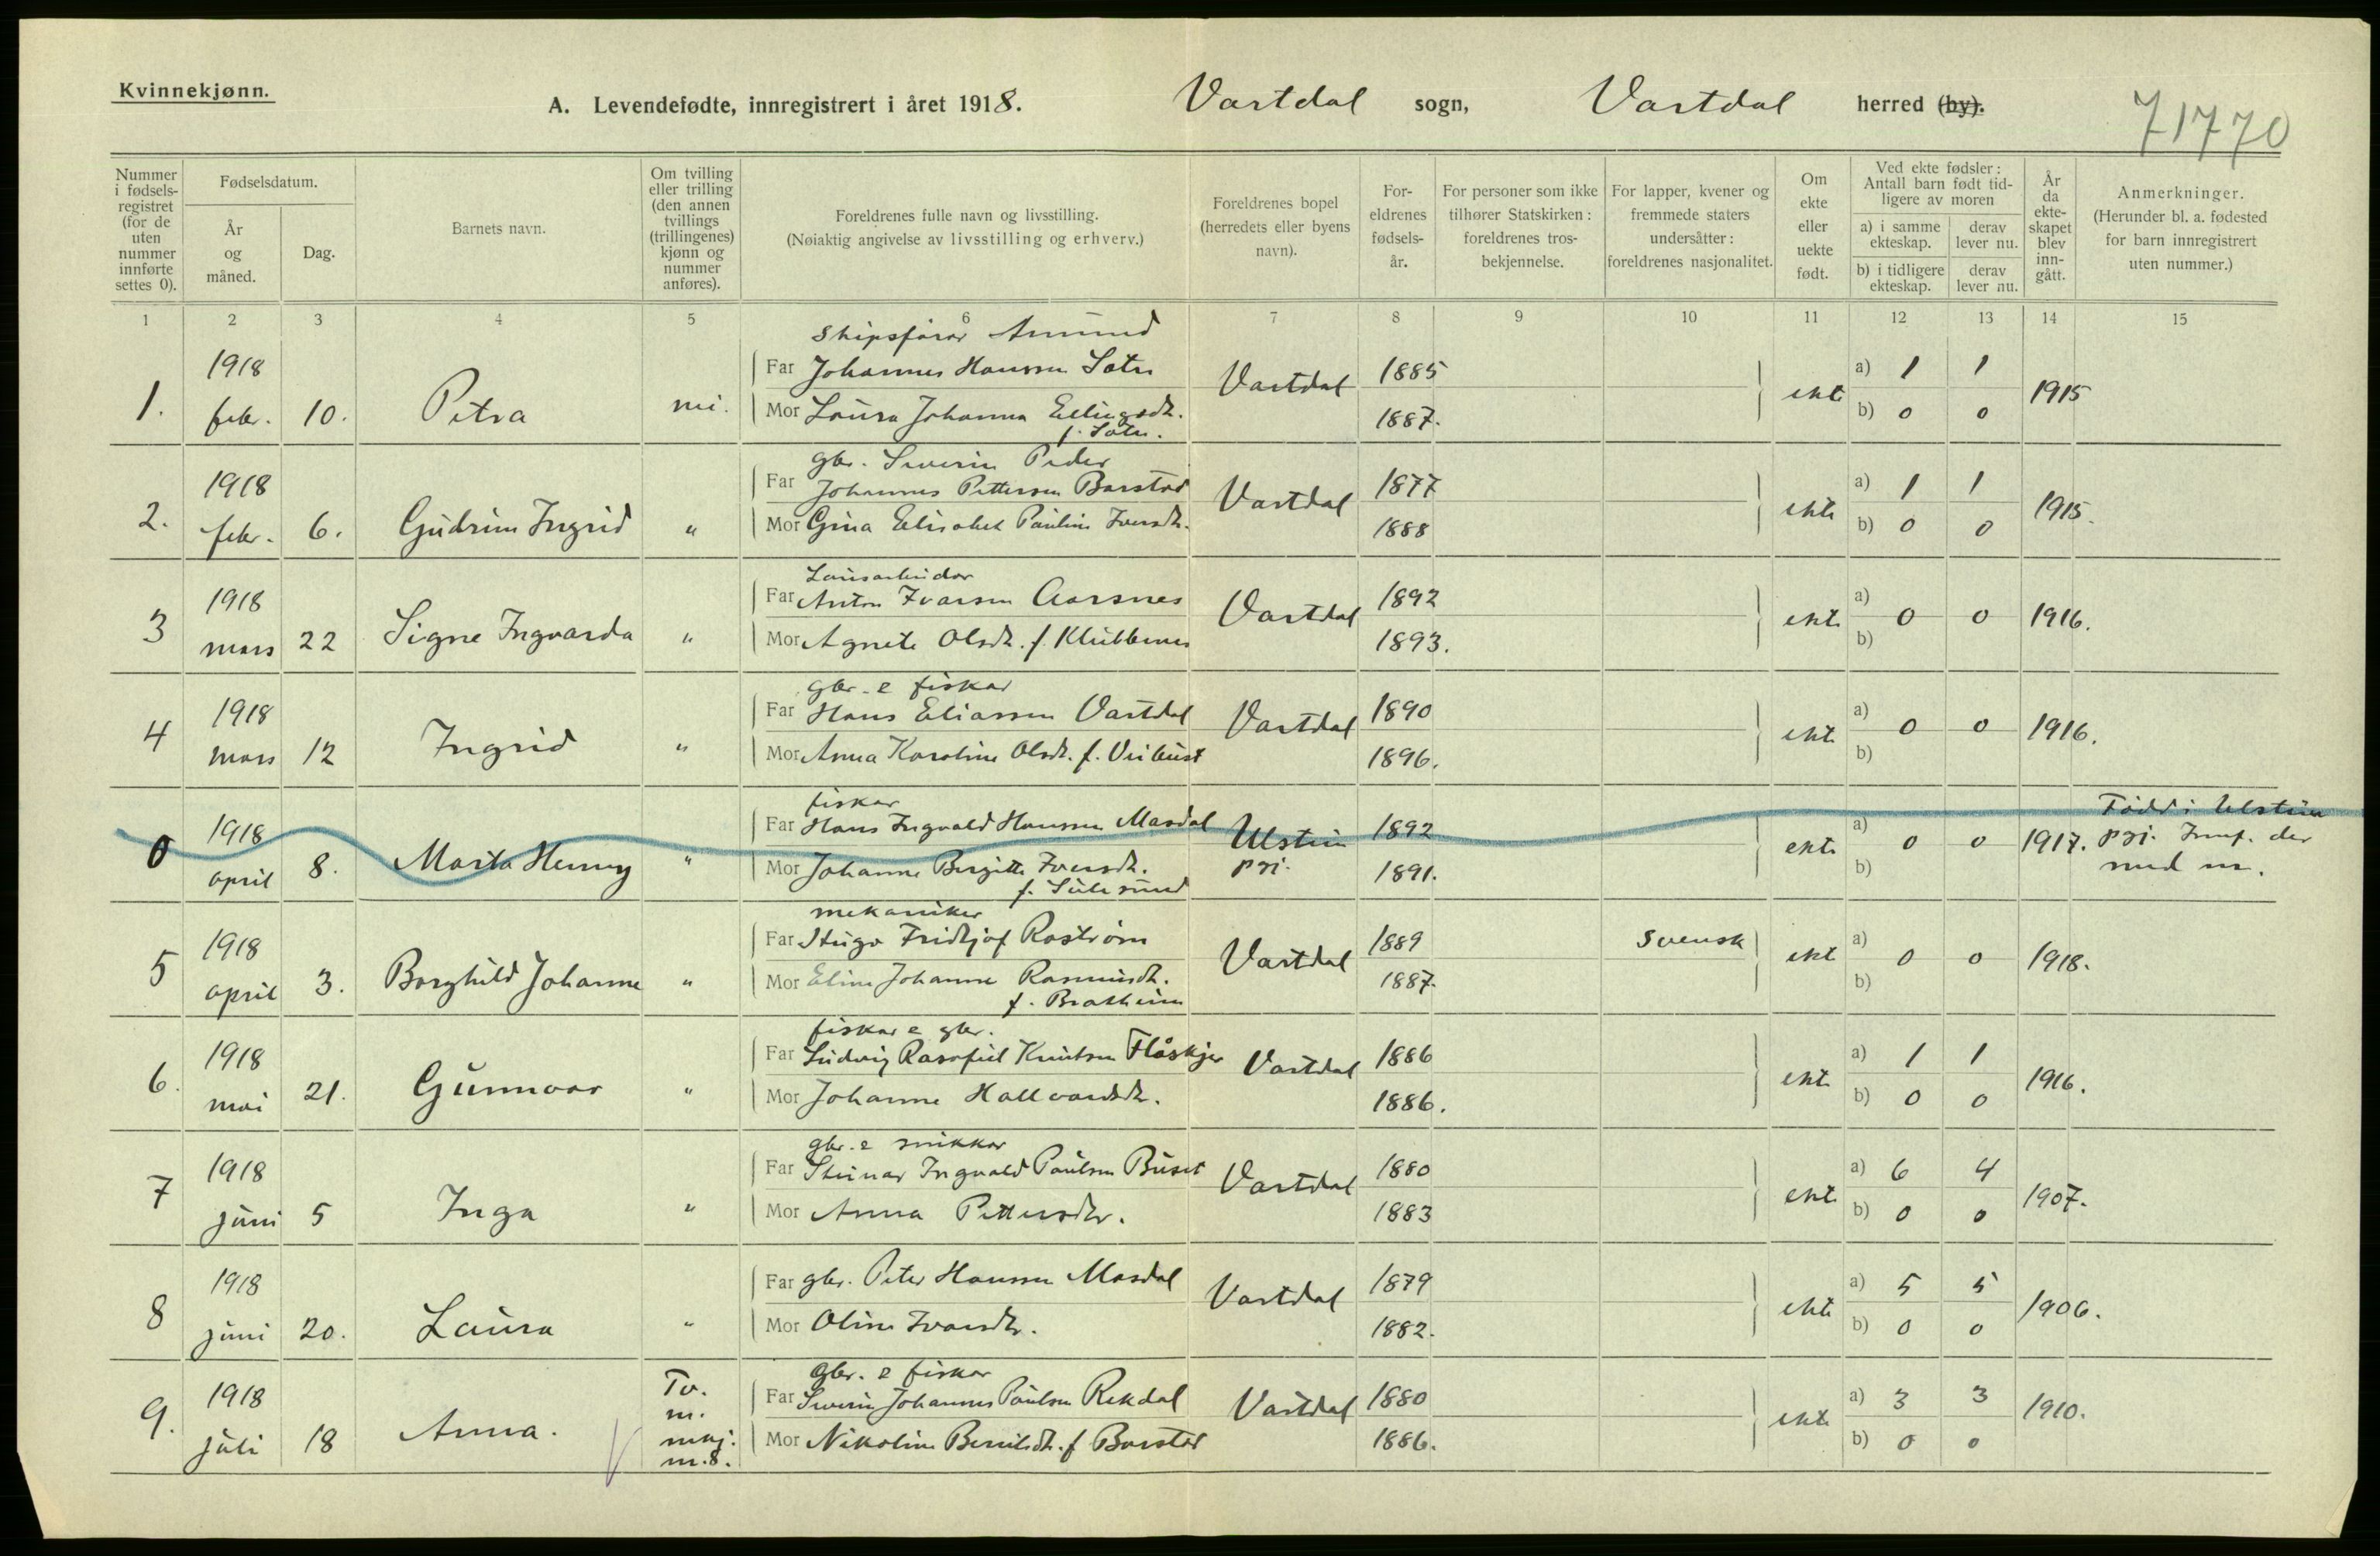 Kvinnekjønn.
A. Levendefødte, innregistrert i året 1918. Vartdal sogn, Vartdal herred (by).
71770
Nummer i fødsels-registret (for de uten nummer innførte settes 0).
Fødselsdatum.
År og måned.
Dag.
Barnets navn.
Om tvilling eller trilling (den annen tvillings (trillingenes) kjønn og nummer anføres).
Foreldrenes fulle navn og livsstilling.
(Nøiaktig angivelse av livsstilling og erhverv.)
Foreldrenes bopel (herredets eller byens navn).
For-eldrenes fødsels-år.
For personer som ikke tilhører Statskirken: foreldrenes tros-bekjennelse.
For lapper, kvener og fremmede staters undersåtter: foreldrenes nasjonalitet.
Om ekte eller uekte født.
Ved ekte fødsler: Antall barn født tid-ligere av moren
a) i samme ekteskap.
derav lever nu.
b) i tidligere ekteskap.
derav lever nu.
År da ekte-skapet blev inn-gått.
Anmerkninger.
(Herunder bl. a. fødested for barn innregistrert uten nummer.)
1 2 3 4 5 6 7 8 9 10 11 12 13 14 15
Skipsførar Amund
1. 1918 febr. 10. Petra nei. Far Johannes Hanssen Vartdal 1885 ekte a) 1 1 1915
Mor Laura Johanna Ellingsdt. 1887. b) 0 0
gbr. Severin Peder
2. 1918 febr. 6. Gudrun Ingrid " Far Johannes Pettersen Barstad Vartdal 1877 ekte a) 1 1 1915.
Mor Gina Elisabet Pauline Iversdt. 1888 b) 0 0
Lausarbeidar
3 1918 mars 22 Signe Ingvarda " Far Anton Ivarsen Aarsnes Vartdal 1892 ekte a) 0 0 1916.
Mor Agnete Olsdt. f. Klubbenes 1893. b)
gbr. e fiskar
4 1918 mars 12 Ingrid " Far Hans Eliassen Vartdal Vartdal 1890 ekte a) 0 0 1916.
Mor Anna Karoline Olsdt. f. 1896. b)
fiskar
0 1918 april 8. Marta Henny " Far Hans Ingvald Hanssen Masdal Ulstein prj. 1892 ekte a) 0 0 1917. Född i Ulstein prj. Innf. der med nr.
Mor Johanne Birgitte Iversdt. 1891. b)
mekaniker
5 1918 april 3. Borghild Johanne " Far Hugo Fridtjof Roström Vartdal 1889 svensk ekte a) 0 0 1918.
Mor Eline Johanne Rasmusdt. 1887. b)
f. Brattheim
fiskar e gbr.
6. 1918 mai 21. Gunnvor " Far Ludvig Knutsen Flåskjer Vartdal 1886 ekte a) 1 1 1916.
Mor Johanne Hallvardsdt. 1886. b) 0 0
gbr. e snikkar
7 1918 juni 5 Inga " Far Steinar Ingvald Paulsen Buset Vartdal 1880 ekte a) 6 4 1907.
Mor Anna Pettersdtr. 1883 b) 0 0
8 1918 juni 20. Laura " Far gbr. Peter Hanssen Masdal Vartdal 1879 ekte a) 5 5 1906.
Mor Oline Ivarsdtr. 1882. b) 0 0
gbr. e fiskar
9. 1918 juli 18 Anna. Tv. m. mkj. m.8. Far Severin Johannes Paulsen Rekdal Vartdal 1880 ekte a) 3 3 1910.
Mor Nikoline f Barstad 1886. b) 0 0